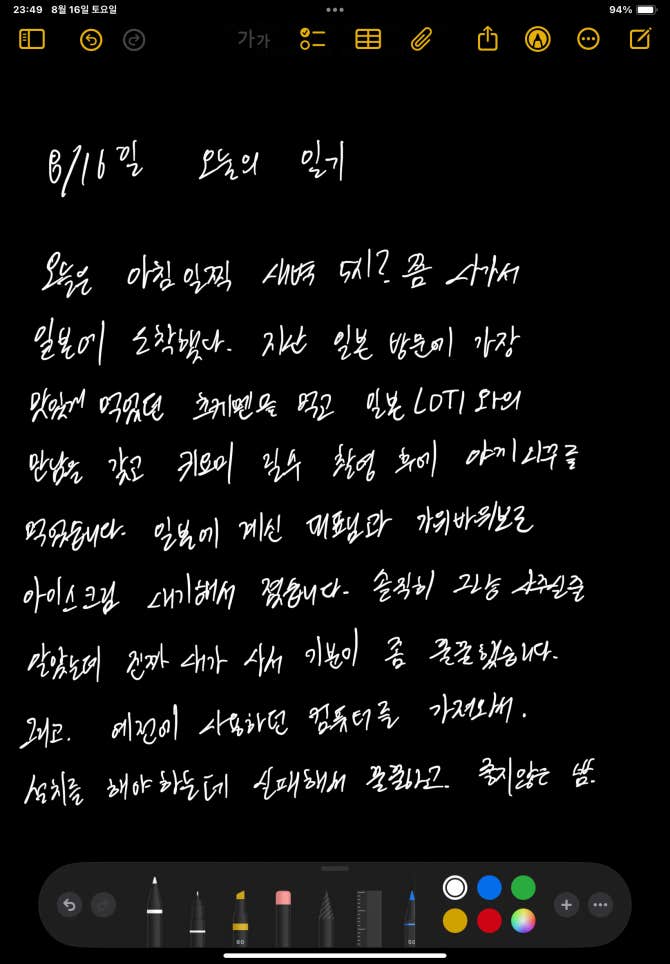 23:49 8월 16일 토요일
94%
가가
8/16일 오늘의 일기
오늘은 아침 일찍 새벽 5시? 쯤 나가서
일본에 도착했다. 지난 일본 방문에 가장
맛있게 먹었던 츠케멘을 먹고 일본 LOTI 와의
만남을 갖고 키요미 필수 촬영 후에 야끼니꾸를
먹었습니다. 일본에 계신 대표님과 가위바위보로
아이스크림 내기해서 졌습니다. 솔직히 그냥 사주실줄
알았는데 진짜 내가 사서 기분이 좀 꿀꿀했습니다.
그리고. 예전에 사용하던 컴퓨터를 가져와서.
설치를 해야 하는데 실패해서 꿀꿀하고. 좋지않은 밤.
50
50